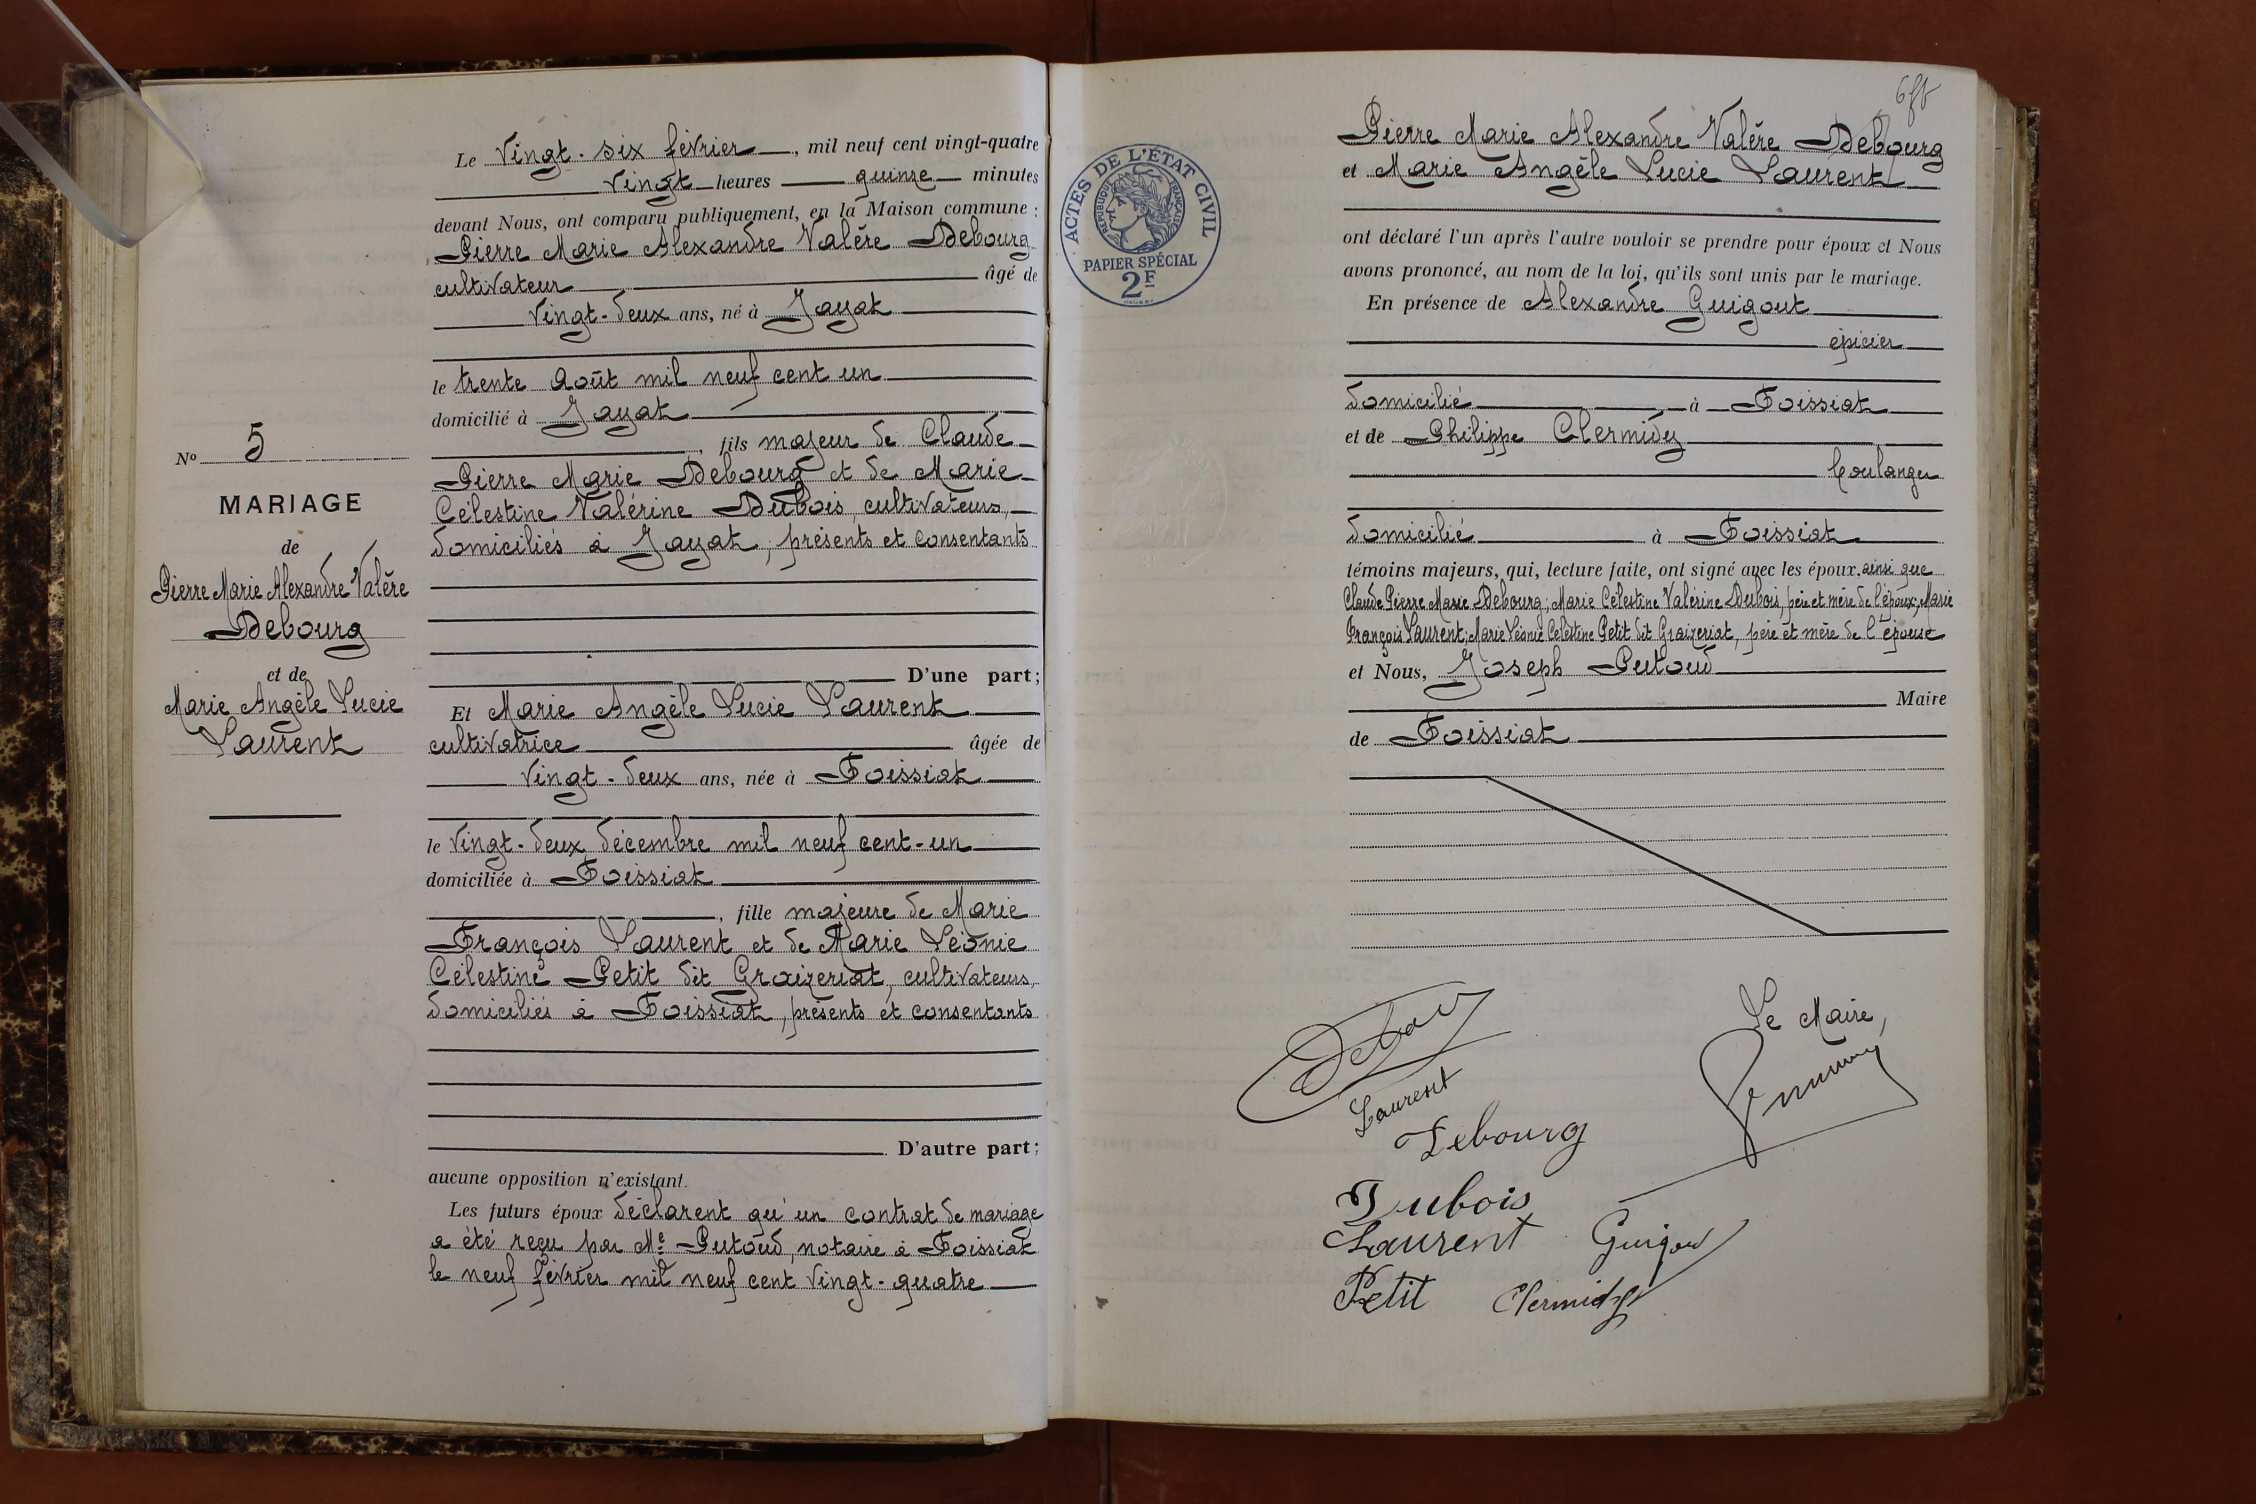 Nº 5
MARIAGE
de
Pierre Marie Alexandre Valère
Debourg
et de
Marie Angèle Lucie
Laurent
Le vingt-six février, mil neuf cent vingt-quatre
vingt heures quinze minutes
devant Nous, ont comparu publiquement, en la Maison commune :
Pierre Marie Alexandre Valère Debourg
cultivateur âgé de
vingt-deux ans, né à Jayat
le trente Août mil neuf cent un
domicilié à Jayat
, fils majeur de Claude
Pierre Marie Debourg et de Marie
Célestine Valérine Dubois, cultivateurs,
domiciliés à Jayat, présents et consentants
D'une part;
Et Marie Angèle Lucie Laurent
cultivatrice âgée de
vingt-deux ans, née à Foissiat
le vingt-deux décembre mil neuf cent-un
domiciliée à Foissiat
, fille majeure de Marie
François Laurent et de Marie Léonie
Célestine Petit dit Graizeriat, cultivateurs,
domiciliés à Foissiat, présents et consentants
D'autre part;
aucune opposition n'existant.
Les futurs époux déclarent qu'un contrat de mariage
a été reçu par Me Putoud, notaire à Foissiat
le neuf février mil neuf cent vingt-quatre
ACTES DE L'ÉTAT CIVIL
RÉPUBLIQUE FRANÇAISE
PAPIER SPÉCIAL
2F
Pierre Marie Alexandre Valère Debourg
et Marie Angèle Lucie Laurent
ont déclaré l'un après l'autre vouloir se prendre pour époux et Nous
avons prononcé, au nom de la loi, qu'ils sont unis par le mariage.
En présence de Alexandre Guigout
épicier
domicilié à Foissiat
et de Philippe Clermidy
boulanger
domicilié à Foissiat
témoins majeurs, qui, lecture faite, ont signé avec les époux. ainsi que
Claude Pierre Marie Debourg; Marie Célestine Valérine Dubois, père et mère de l'époux, Marie
François Laurent; Marie Léonie Célestine Petit dit Graizeriat, père et mère de l'épouse
et Nous, Joseph Putoud
Maire
de Foissiat
Le Maire,
Laurent
Debourg
Dubois
Laurent Guigout
Petit Clermidy